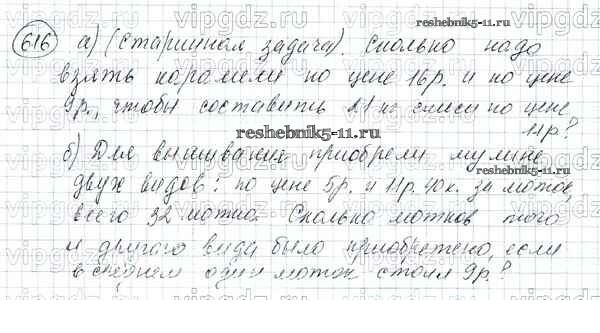 reshebnik5-11.ru
616 а) (Старинная задача). Сколько надо
взять карамели по цене 16р. и по цене
9р., чтобы составить 21 кг смеси по цене
11р?
reshebnik5-11.ru
б) Для вышивания приобрели мулине
двух видов: по цене 5р. и 11р. 40к. за моток,
всего 32 мотка. Сколько мотков того
и другого вида было приобретено, если
в среднем один моток стоил 9р.?
reshebnik5-11.ru